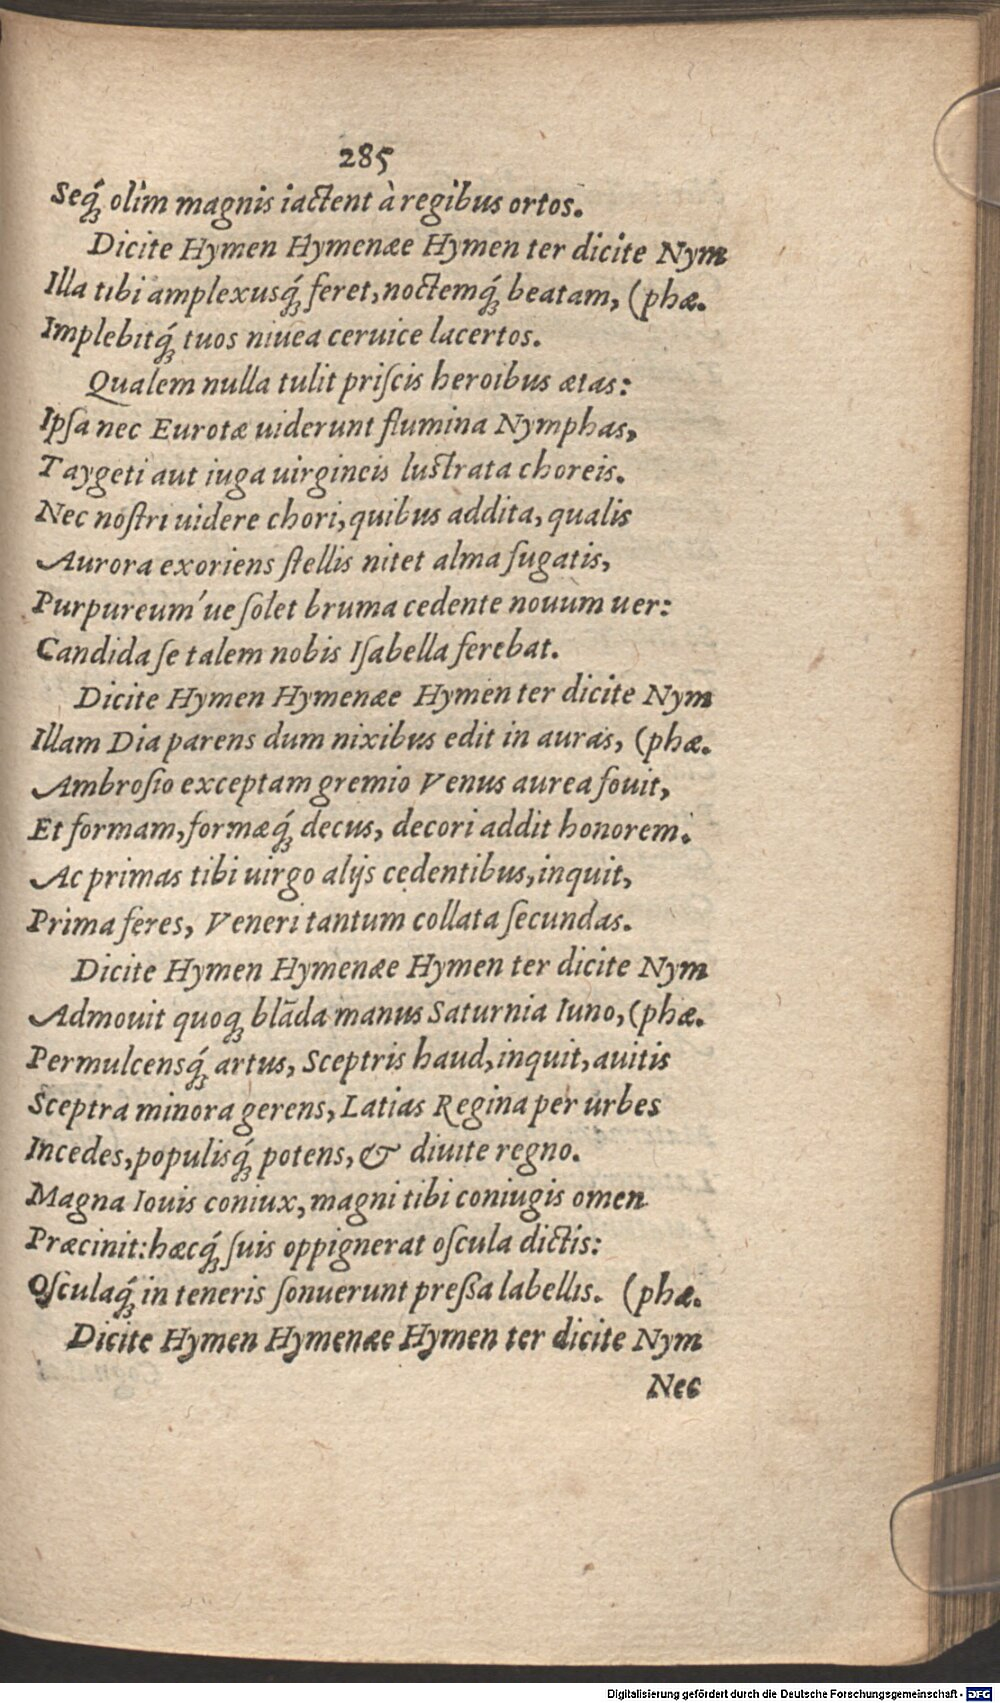 285
Seq́; olim magnis iactent à regibus ortos.
Dicite Hymen Hymenæe Hymen ter dicite Nym
Illa tibi amplexusq́; feret, noctemq́; beatam, (phæ.
Implebitq́; tuos niuea ceruice lacertos.
Qualem nulla tulit priſcis heroibus ætas:
Ipſa nec Eurotæ uiderunt flumina Nymphas,
Taygeti aut iuga uirgineis luſtrata choreis.
Nec noſtri uidere chori, quibus addita, qualis
Aurora exoriens ſtellis nitet alma fugatis,
Purpureum´ue ſolet bruma cedente nouum uer:
Candida ſe talem nobis Iſabella ferebat.
Dicite Hymen Hymenæe Hymen ter dicite Nym
Illam Dia parens dum nixibus edit in auras, (phæ.
Ambroſio exceptam gremio Venus aurea fouit,
Et formam, formæq́; decus, decori addit honorem.
Ac primas tibi uirgo alijs cedentibus, inquit,
Prima feres, Veneri tantum collata ſecundas.
Dicite Hymen Hymenæe Hymen ter dicite Nym
Admouit quoq; blãda manus Saturnia Iuno, (phæ.
Permulcensq́; artus, Sceptris haud, inquit, auitis
Sceptra minora gerens, Latias Regina per urbes
Incedes, populisq́; potens, & diuite regno.
Magna Iouis coniux, magni tibi coniugis omen
Præcinit: hæcq́; ſuis oppignerat oſcula dictis:
Oſculaq́; in teneris ſonuerunt preſſa labellis. (phæ.
Dicite Hymen Hymenæe Hymen ter dicite Nym
Nec
Digitalisierung gefördert durch die Deutsche Forschungsgemeinschaft - DFG